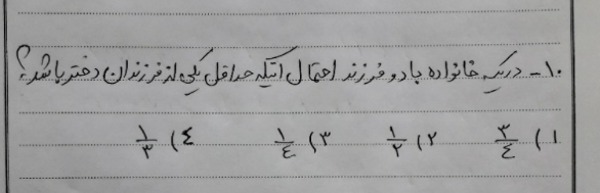 ۱۰- در یک خانواده با دو فرزند احتمال اینکه حداقل یکی از فرزندان دختر باشد؟
۱) ۳/۴ ۲) ۱/۲ ۳) ۱/۴ ۴) ۱/۳